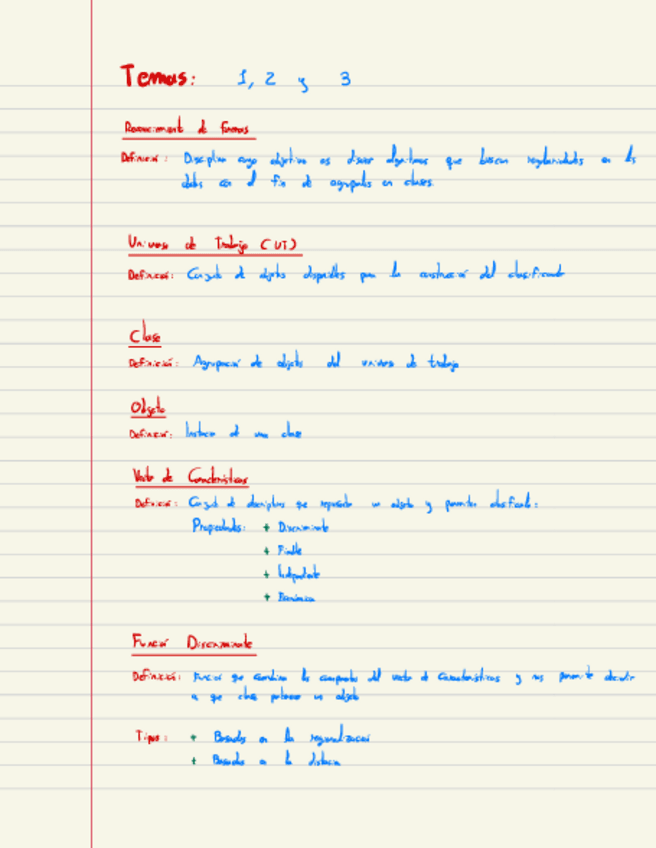 Temas: 1, 2 y 3
Reconocimiento de formas
Definición: Disciplina cuyo objetivo es diseñar algoritmos que buscan regularidades en los
datos con el fin de agruparlos en clases.
Universo de Trabajo (UT)
Definición: Conjunto de objetos disponibles para la construcción del clasificador
Clase
Definición: Agrupación de objetos del universo de trabajo
Objeto
Definición: Instancia de una clase
Vector de Características
Definición: Conjunto de descriptores que representa un objeto y permiten clasificarlo:
Propiedades: + Discriminante
+ Fiable
+ Independiente
+ Económica
Función Discriminante
Definición: Función que combina los componentes del vector de características y nos permite decidir
a que clase pertenece un objeto
Tipos: + Basados en la
+ Basados en la distancia